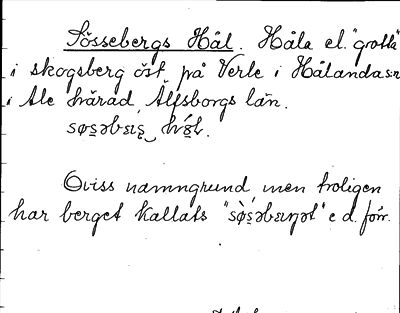 Sössebergs Hål. Håla el. "grotta"
i skogsberg öst på Verle i Hålanda s:n
i Ale härad, Älfsborgs län.
Oviss namngrund, men troligen
har berget kallats "sø̀s̱əbɛŋət" e d. förr.